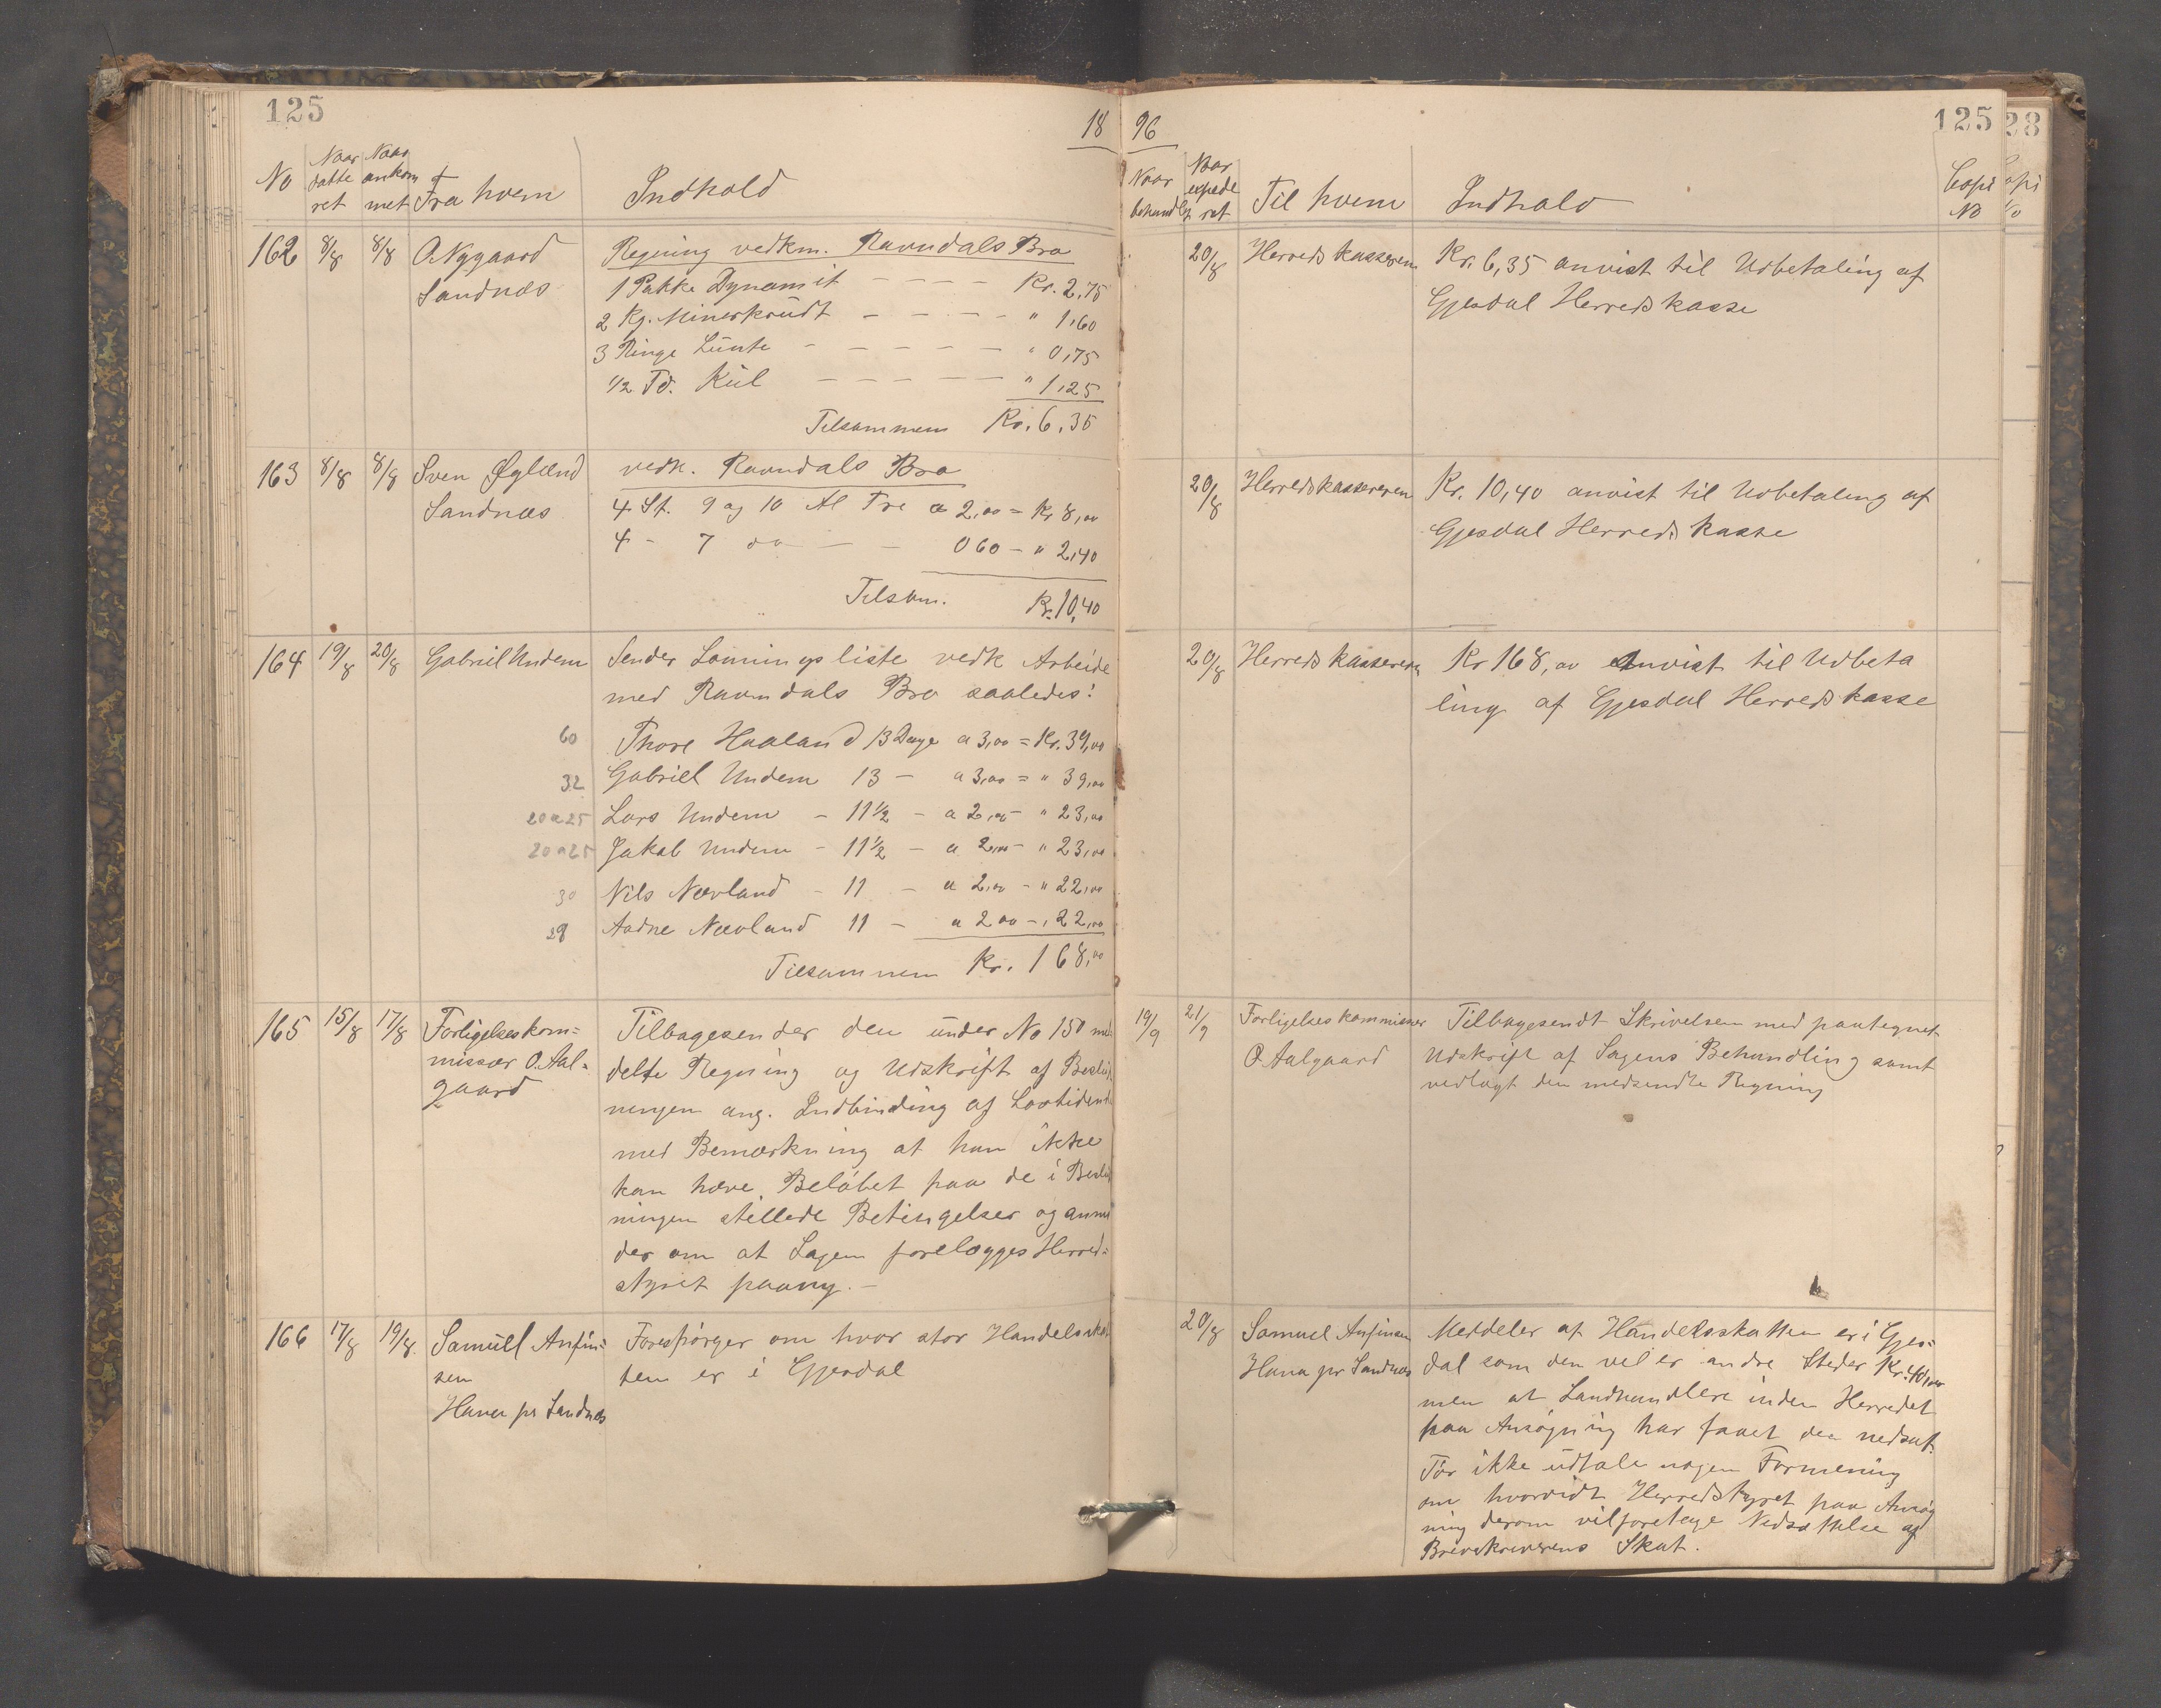 125
18
No Naar datteret Naar ankommet Fra hvem Indhold
162 8/8 8/8 O. Nygaard Regning vedkm. Ravndals Bro
Sandnæs 1 Pakke Dynamit — — — Kr. 2,75
2 Kg. Minerkrudt — — — — " 1,60
3 Ringe Lunte — — — — — " 0,75
1/2 Td. Kul — — — — — " 1,25
Tilsammen Kr. 6,35
163 8/8 8/8 Sven Øglænd vedk. Ravndals Bro
Sandnæs 4 St. 9 og 10 Al Træ a 2,00 = Kr 8,00
4 - 7 do — — 0 60 — " 2,40
Tilsam. Kr. 10,40
164 19/8 20/8 Gabriel Undem Sender Lønningsliste vedk Arbeide
med Ravndals Bro saaledes:
60 Thore Haaland 13 Dage a 3,00 = Kr. 39,00
32 Gabriel Undem 13 — a 3,00 = " 39,00
20 a 25 Lars Undem - 11 1/2 - a 2,00 - " 23,00
20 a 25 Jakob Undem - 11 1/2 - a 2,00 - " 23,00
30 Nils Nævland - 11 - a 2,00 - " 22,00
29 Aadne Nævland 11 - a 2 00 - " 22,00
Tilsammen Kr. 168,00
165 15/8 17/8 Forligelseskom= Tilbagesender den under No 150 med
missær O. Aal= delte Regning og Udskrift af Beslut
gaard ningen ang. Indbinding af Lovtidende
med Bemærkning at han ikke
kan hæve Beløbet paa de i Beslut
ningen stillede Betingelser og anmo
der om at Sagen forelægges Herred=
styret paany. —
166 17/8 19/8 Samuel Anfin= Forespørger om hvor stor Handelsskat
sen ten er i Gjesdal
Hana pr Sandnæs
96
125
28
Naar behandlet Naar expederet Til hvem Indhold Copi No
20/8 Herredskasseren Kr. 6,35 anvist til Udbetaling af
Gjesdal Herredskasse
20/8 Herredskassereren Kr. 10,40 anvist til Udbetaling af
Gjesdal Herredskasse
20/8 Herredskassereren Kr 168,00 anvist til Udbeta
ling af Gjesdal Herredskasse
19/9 21/9 Forligelseskommissær Tilbagesendt Skrivelsen med paategnet
O Aalgaard Udskrift af Sagens Behandling samt
vedlagt den medsendte Regning
20/8 Samuel Anfinsen Meddeler at Handelsskatten er i Gjes=
Hana pr Sandnæs dal som den vel er andre Steder Kr. 40,00
men at Landhandlere inden Herredet
paa Ansøgning har faaet den nedsat.
Tør ikke udtale nogen Formening
om hvorvidt Herredstyret paa Ansøg
ning derom vil foretage Nedsættelse af
Brevskriverens Skat.